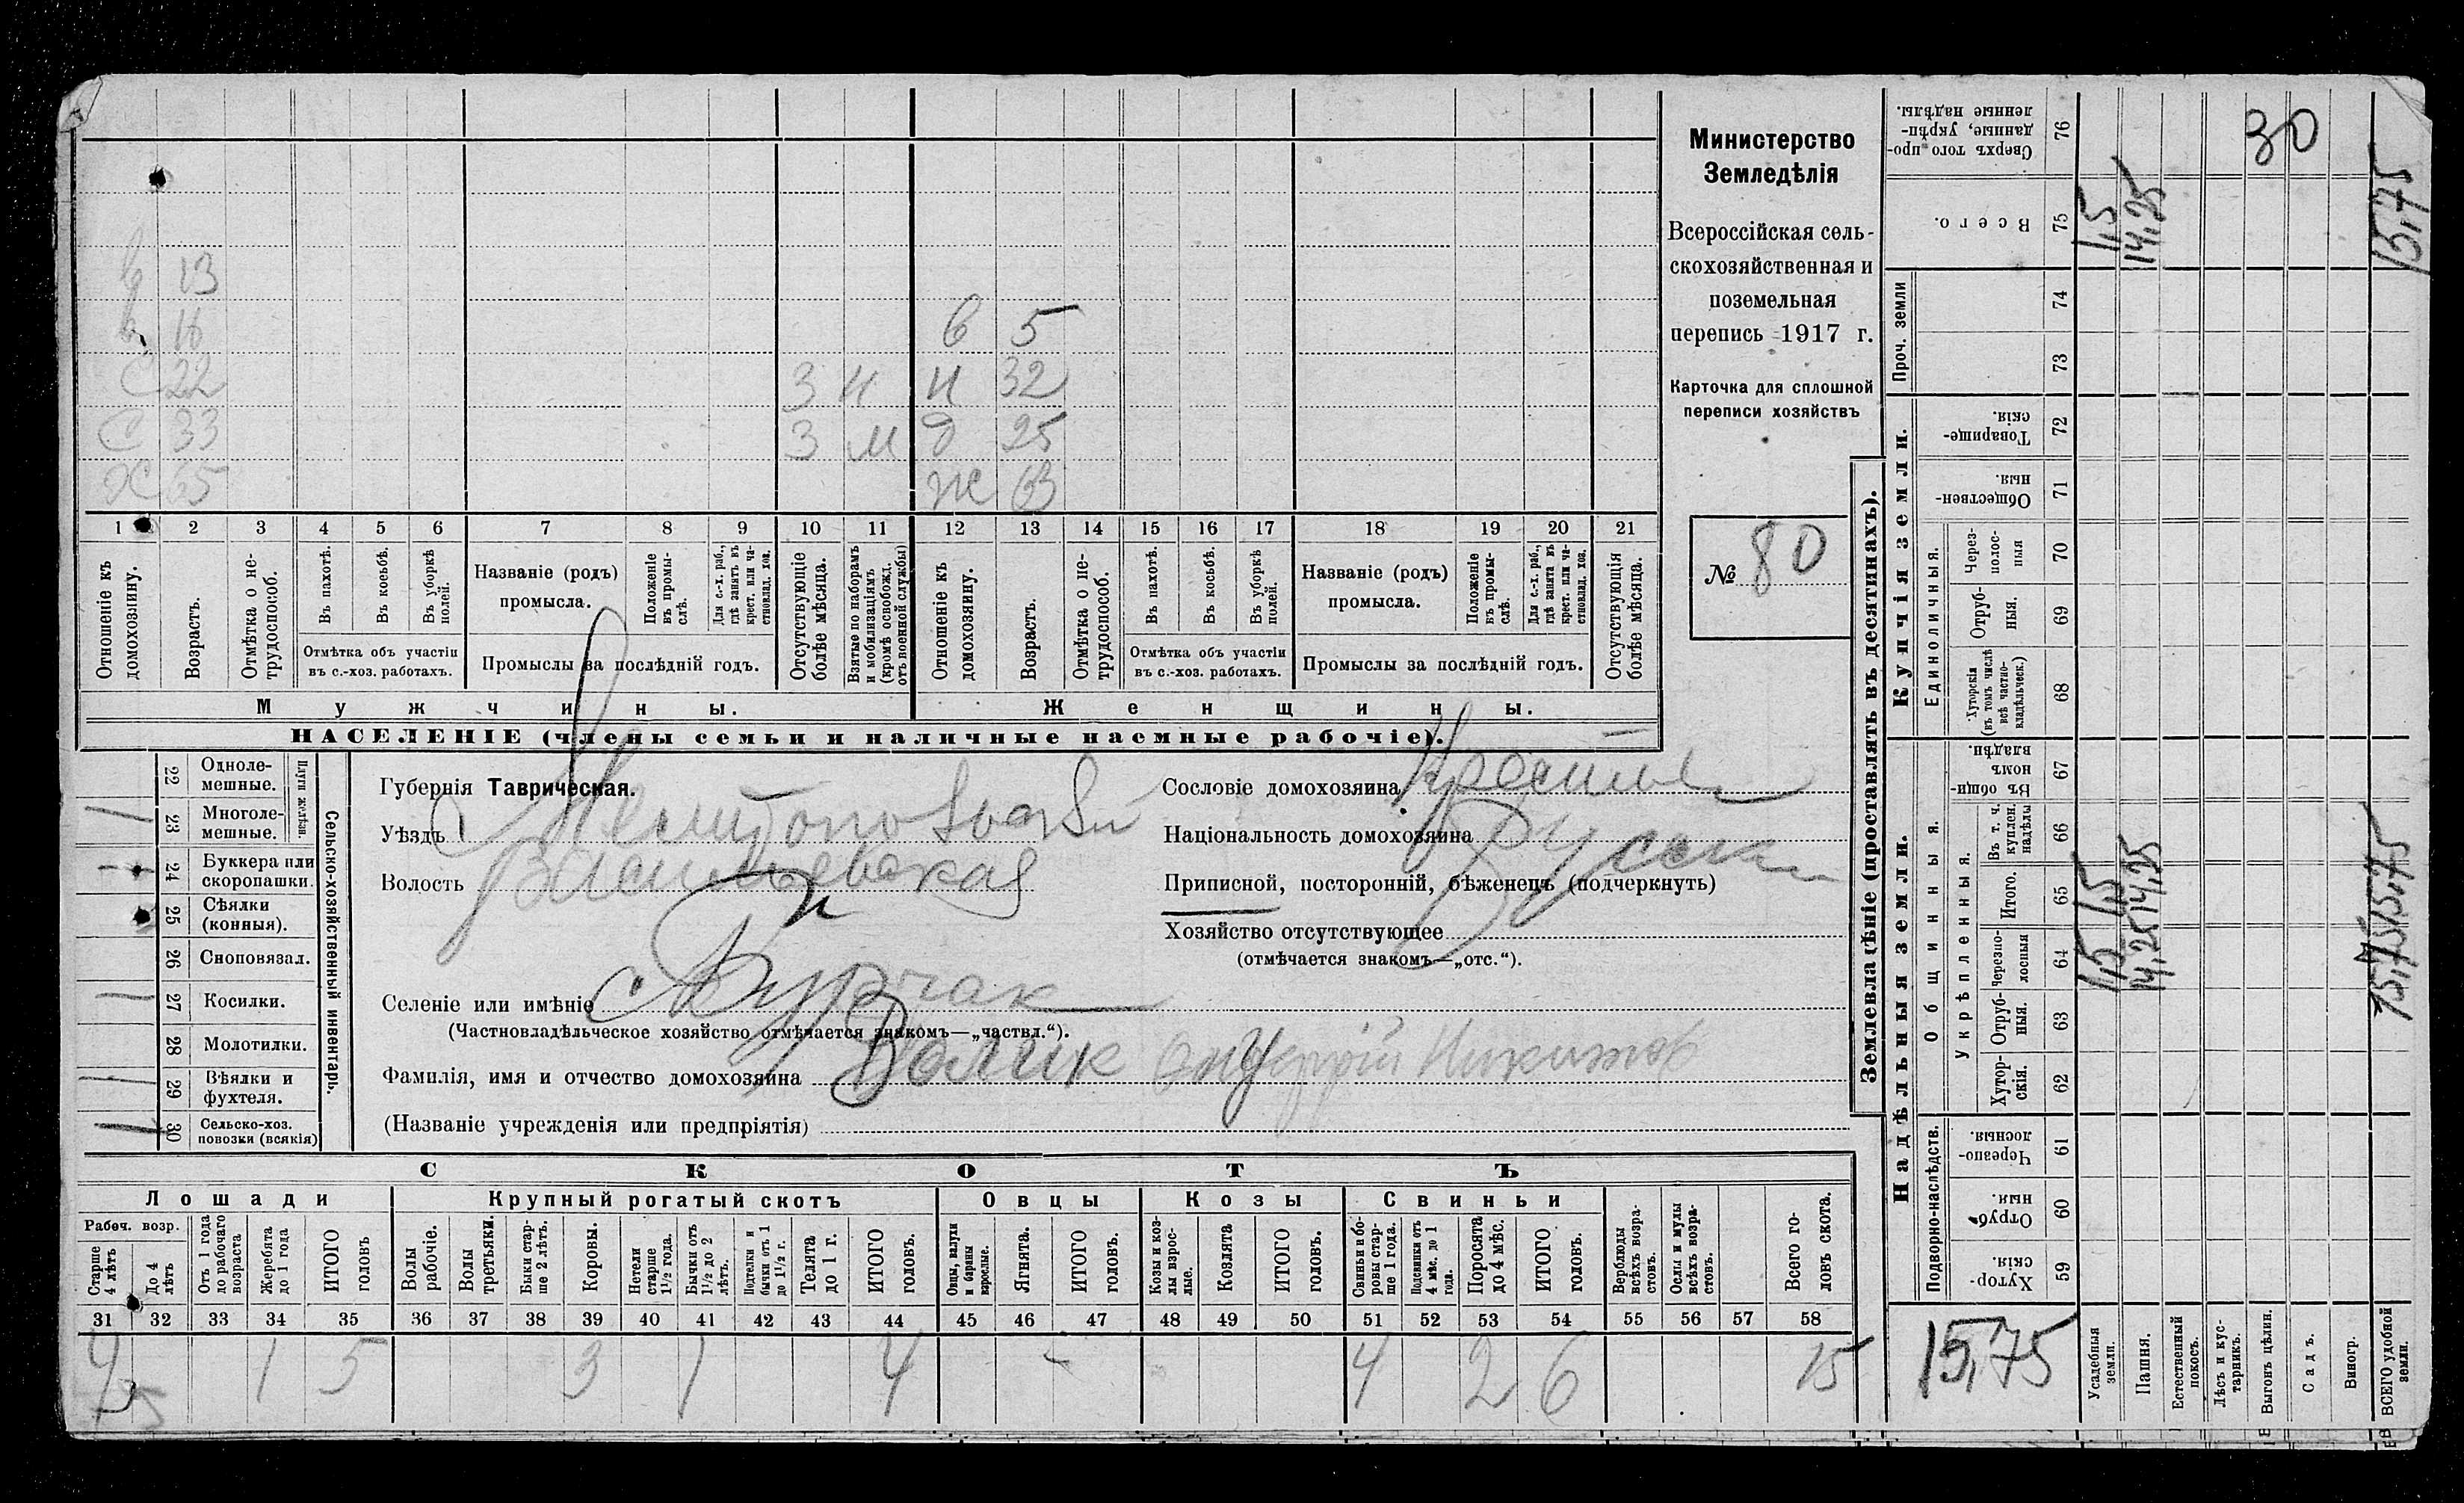 Министерство
Земледѣлія
Всероссійская сель-
скохозяйственная и
поземельная
перепись 1917 г.
Карточка для сплошной
переписи хозяйствъ
№ 80
в 13
в 11 в 5
С 22 З Н Н 32
С 33 З М д 25
Ж 65 Ж 63
1 2 3 4 5 6 7 8 9 10 11 12 13 14 15 16 17 18 19 20 21
Отношеніе къ домохозяину.
Возрастъ.
Отмѣтка о не-трудоспособ.
Въ пахотѣ.
Въ косьбѣ.
Въ уборкѣ полей.
Отмѣтка объ участіи
въ с.-хоз. работахъ.
Названіе (родъ)
промысла.
Положеніе въ промы-слѣ.
Для с.-х. раб., гдѣ занятъ въ крест. или ча-стновлад. хоз.
Промыслы за послѣдній годъ.
Отсутствующіе болѣе мѣсяца.
Взятые по наборамъ и мобилизаціямъ (кромѣ освобожд. отъ военной службы)
Отношеніе къ домохозяину.
Возрастъ.
Отмѣтка о не-трудоспособ.
Въ пахотѣ.
Въ косьбѣ.
Въ уборкѣ полей.
Отмѣтка объ участіи
въ с.-хоз. работахъ.
Названіе (родъ)
промысла.
Положеніе въ промы-слѣ.
Для с.-х. раб., гдѣ занята въ крест. или ча-стновлад. хоз.
Промыслы за послѣдній годъ.
Отсутствующія болѣе мѣсяца.
Мужчины. Женщины.
НАСЕЛЕНІЕ (члены семьи и наличные наемные рабочіе).
22 Одноле-мешные.
23 Многоле-мешные.
Плуги желѣзн.
24 Буккера или скоропашки.
25 Сѣялки (конныя).
26 Сноповязал.
27 Косилки.
28 Молотилки.
29 Вѣялки и фухтеля.
30 Сельско-хоз. повозки (всякія)
Сельско-хозяйственный инвентарь.
Губернія Таврическая.
Уѣздъ Мелитопольскій
Волость Васильевская
Селеніе или имѣніе с Бурчак
(Частновладѣльческое хозяйство отмѣчается знакомъ—„частвл.“).
Фамилія, имя и отчество домохозяина Онуфрій Никитов
(Названіе учрежденія или предпріятія)
Сословіе домохозяина
Національность домохозяина Русски
Приписной, посторонній, бѣженецъ (подчеркнуть)
Хозяйство отсутствующее
(отмѣчается знакомъ—„отс.“).
СКОТЪ
Лошади Крупный рогатый скотъ Овцы Козы Свиньи
Рабоч. возр.
Старше 4 лѣтъ
До 4 лѣтъ
Отъ 1 года до рабочаго возраста
Жеребята до 1 года
ИТОГО головъ
Волы рабочіе.
Волы третьяки.
Быки стар-ше 2 лѣтъ.
Коровы.
Нетели старше 1½ года.
Бычки отъ 1½ до 2 лѣтъ.
Подтелки и бычки отъ 1 до 1½ г.
Телята до 1 г.
ИТОГО головъ.
Овцы, валухи и бараны взрослые.
Ягнята.
ИТОГО головъ.
Козы и коз-лы взрос-лые.
Козлята
ИТОГО головъ.
Свиньи и бо-ровы стар-ше 1 года.
Подсвинки отъ 4 мѣс. до 1 года.
Поросята до 4 мѣс.
ИТОГО головъ.
Верблюды всѣхъ возра-стовъ.
Ослы и мулы всѣхъ возра-стовъ.
Всего го-ловъ скота.
31 32 33 34 35 36 37 38 39 40 41 42 43 44 45 46 47 48 49 50 51 52 53 54 55 56 57 58
4 1 5 3 1 4 4 2 6 15
Землевладѣніе (проставлять въ десятинахъ).
Надѣльныя земли.
Купчія земли.
Проч. земли
Подворно-наслѣдств.
Общинныя.
Укрѣпленныя.
Единоличныя.
59 Хутор-скія.
60 Отруб-ныя.
61 Черезпо-лосныя.
62 Хутор-скія.
63 Отруб-ныя.
64 Черезпо-лосныя 1,5 14,25 15,75
65 Итого. 1,5 14,25 15,75
66 Въ т. ч. куплен. надѣлы
67 Въ общи-номъ владѣн.
68 Хуторскія (въ томъ числѣ всѣ частно-владѣльческ.)
69 Отруб-ныя.
70 Через-полос-ныя
71 Обществен-ныя.
72 Товарище-скія.
73
74
75 Всего. 1,5 14,25 15,75
76 Сверхъ того про-данные, укрѣп-ленные надѣлы.
30
15,75
Усадебныя земли.
Пашня.
Естественный покосъ.
Лѣсъ и кус-тарникъ.
Выгонъ цѣлин.
Садъ.
Виногр.
ВСЕГО удобной земли.